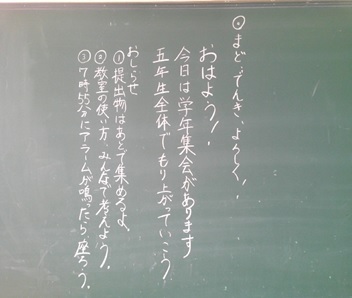 ◦まど、でんき、よろしく!
おはよう!
今日は学年集会があります
五年生全体でもり上がっていこう
おしらせ
①提出物はあとで集めるよ、
②教室の使い方、みんなで考えよう。
③7時55分にアラームが鳴ったら、座ろう。